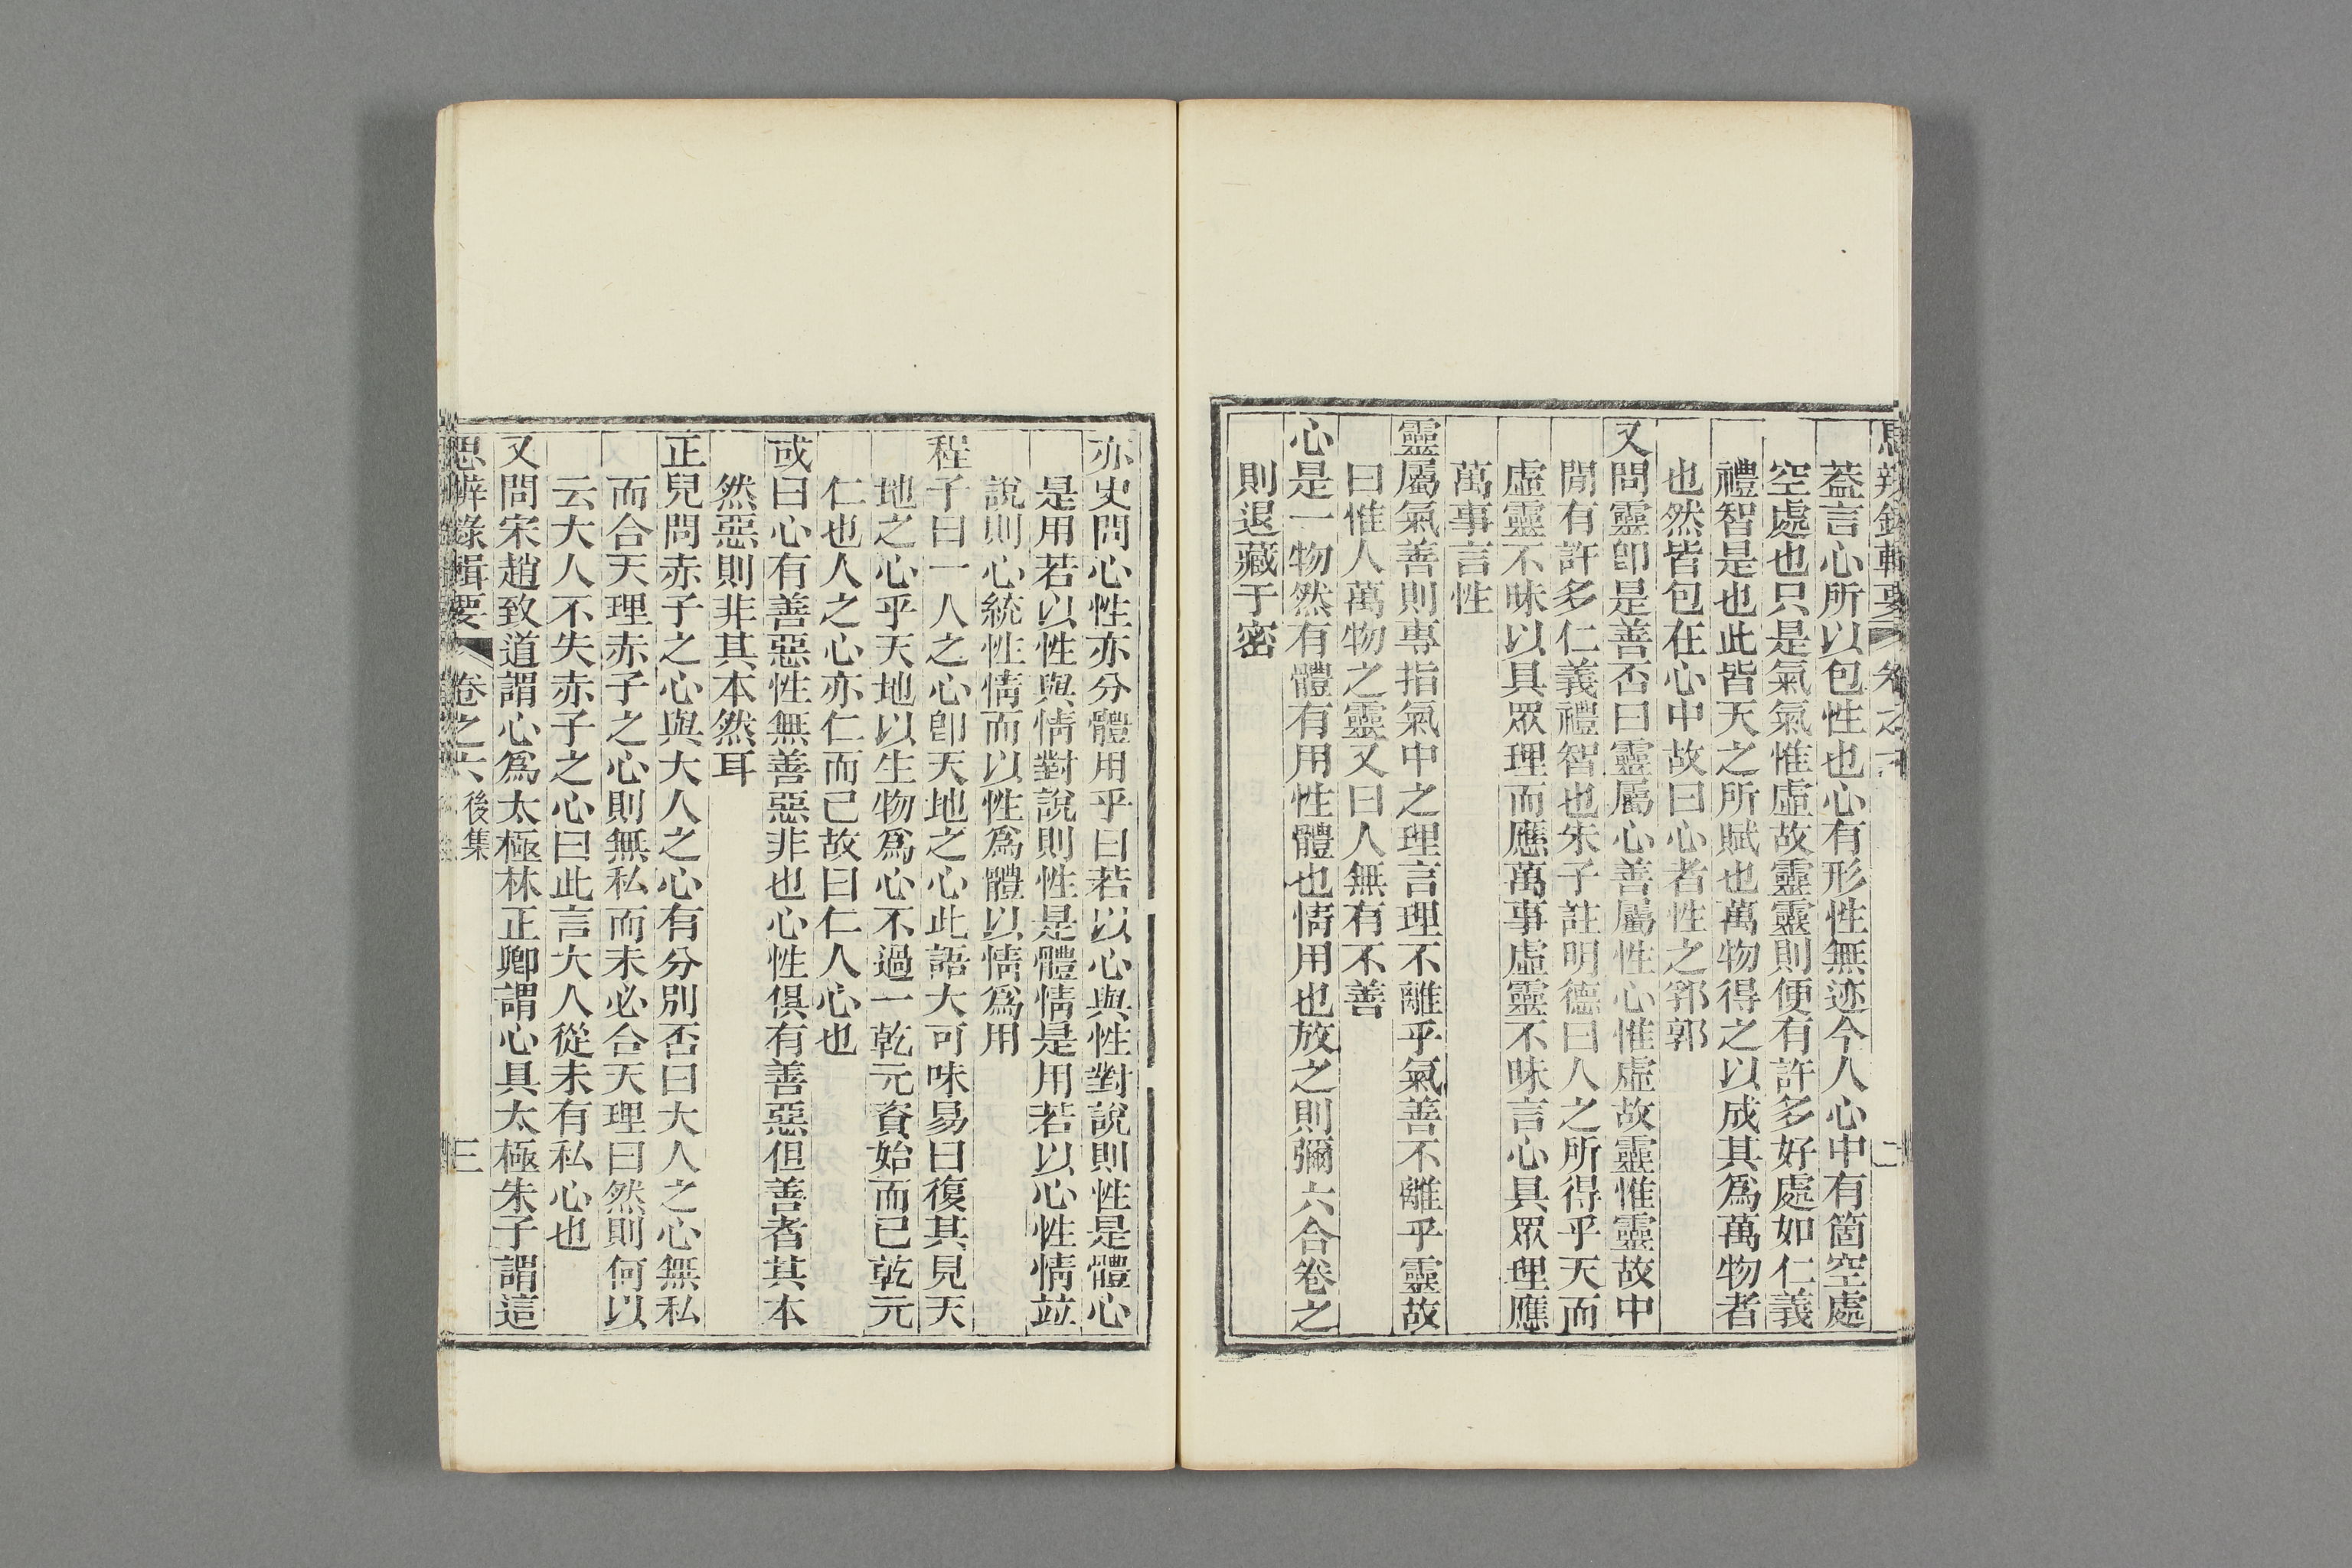 思辨錄輯要 卷之六 二
蓋言心所以包性也心有形性無迹今人心中有箇空處
空處也只是氣氣惟虛故靈靈則便有許多好處如仁義
禮智是也此皆天之所賦也萬物得之以成其爲萬物者
也然皆包在心中故曰心者性之郛郭
又問靈卽是善否曰靈屬心善屬性心惟虛故靈惟靈故中
閒有許多仁義禮智也朱子註明德曰人之所得乎天而
虛靈不昧以具眾理而應萬事虛靈不昧言心具眾理應
萬事言性
靈屬氣善則專指氣中之理言理不離乎氣善不離乎靈故
曰惟人萬物之靈又曰人無有不善
心是一物然有體有用性體也情用也放之則彌六合卷之
則退藏于密
亦史問心性亦分體用乎曰若以心與性對說則性是體心
是用若以性與情對說則性是體情是用若以心性情竝
說則心統性情而以性爲體以情爲用
程子曰一人之心卽天地之心此語大可味易曰復其見天
地之心乎天地以生物爲心不過一乾元資始而已乾元
仁也人之心亦仁而已故曰仁人心也
或曰心有善惡性無善惡非也心性俱有善惡但善者其本
然惡則非其本然耳
正兒問赤子之心與大人之心有分別否曰大人之心無私
而合天理赤子之心則無私而未必合天理曰然則何以
云大人不失赤子之心曰此言大人從未有私心也
又問宋趙致道謂心爲太極林正卿謂心具太極朱子謂這
思辨錄輯要 卷之六 後集 三